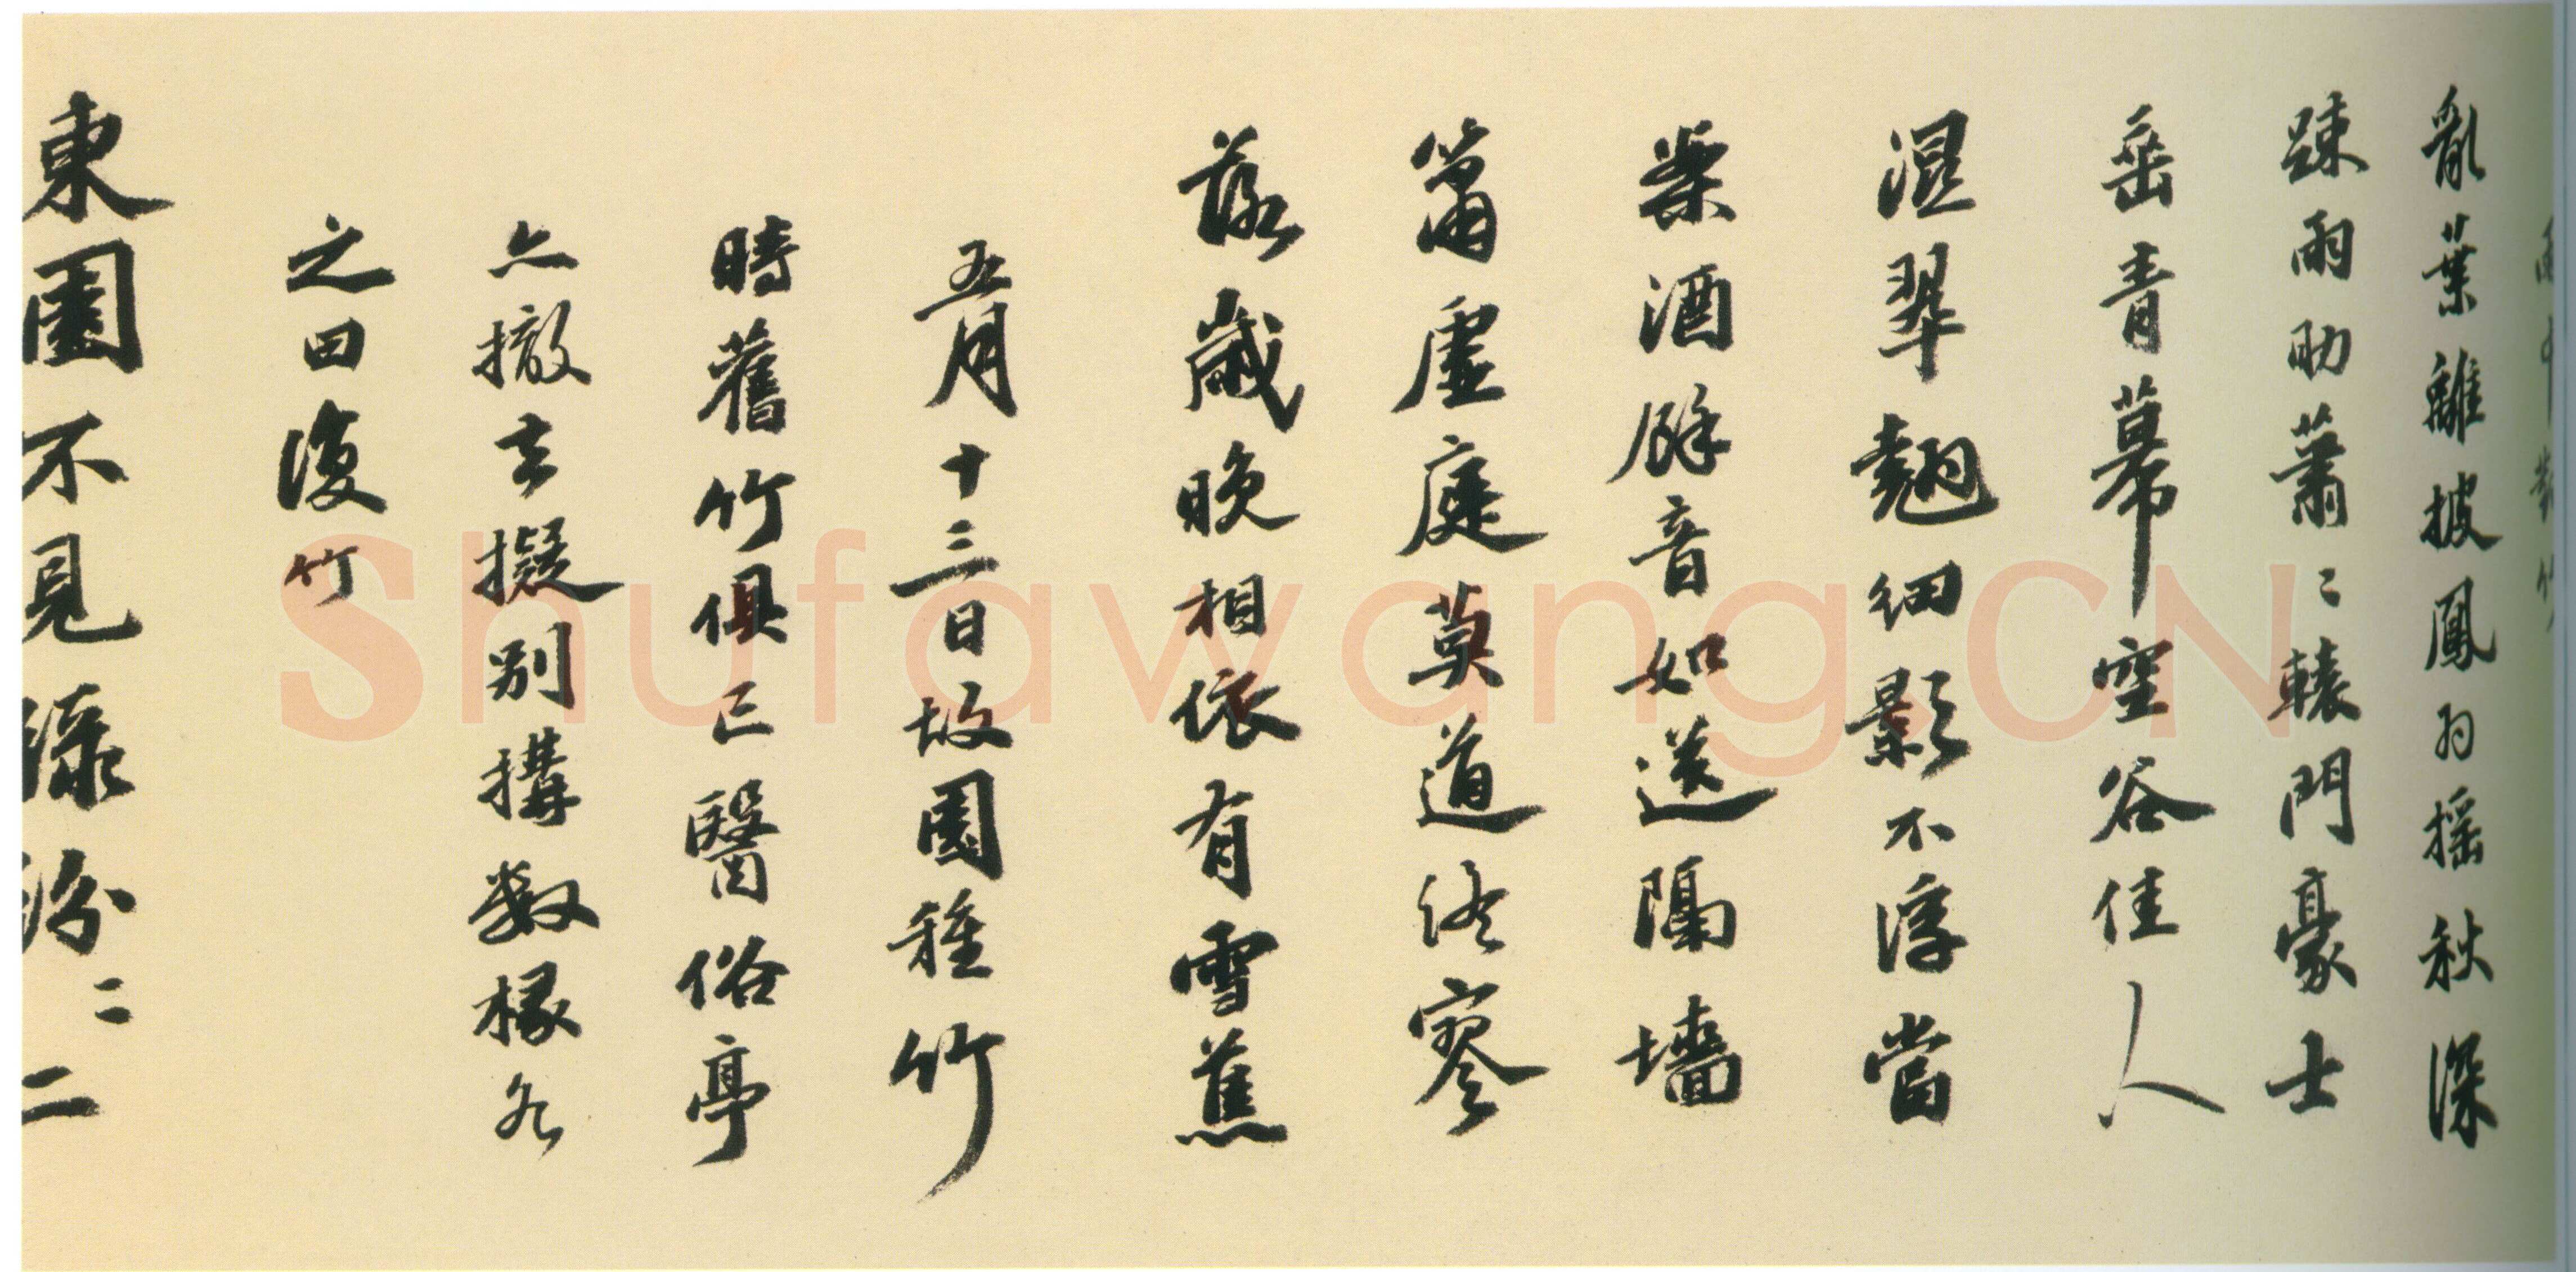 雨中對竹
亂葉離披鳳羽摇秋深
疎雨助蕭〻轅門豪士
垂青幕空谷佳人
濕翠翹細影不淳當
檠酒餘音如送隔墻
簫虚庭莫道終寥
落歲晚相依有雪蕉
五月十三日故園種竹
時舊竹俱亡醫俗亭
亦撤去擬别搆數椽名
之曰復竹
東園不見渌汾〻二
Shufawang.CN